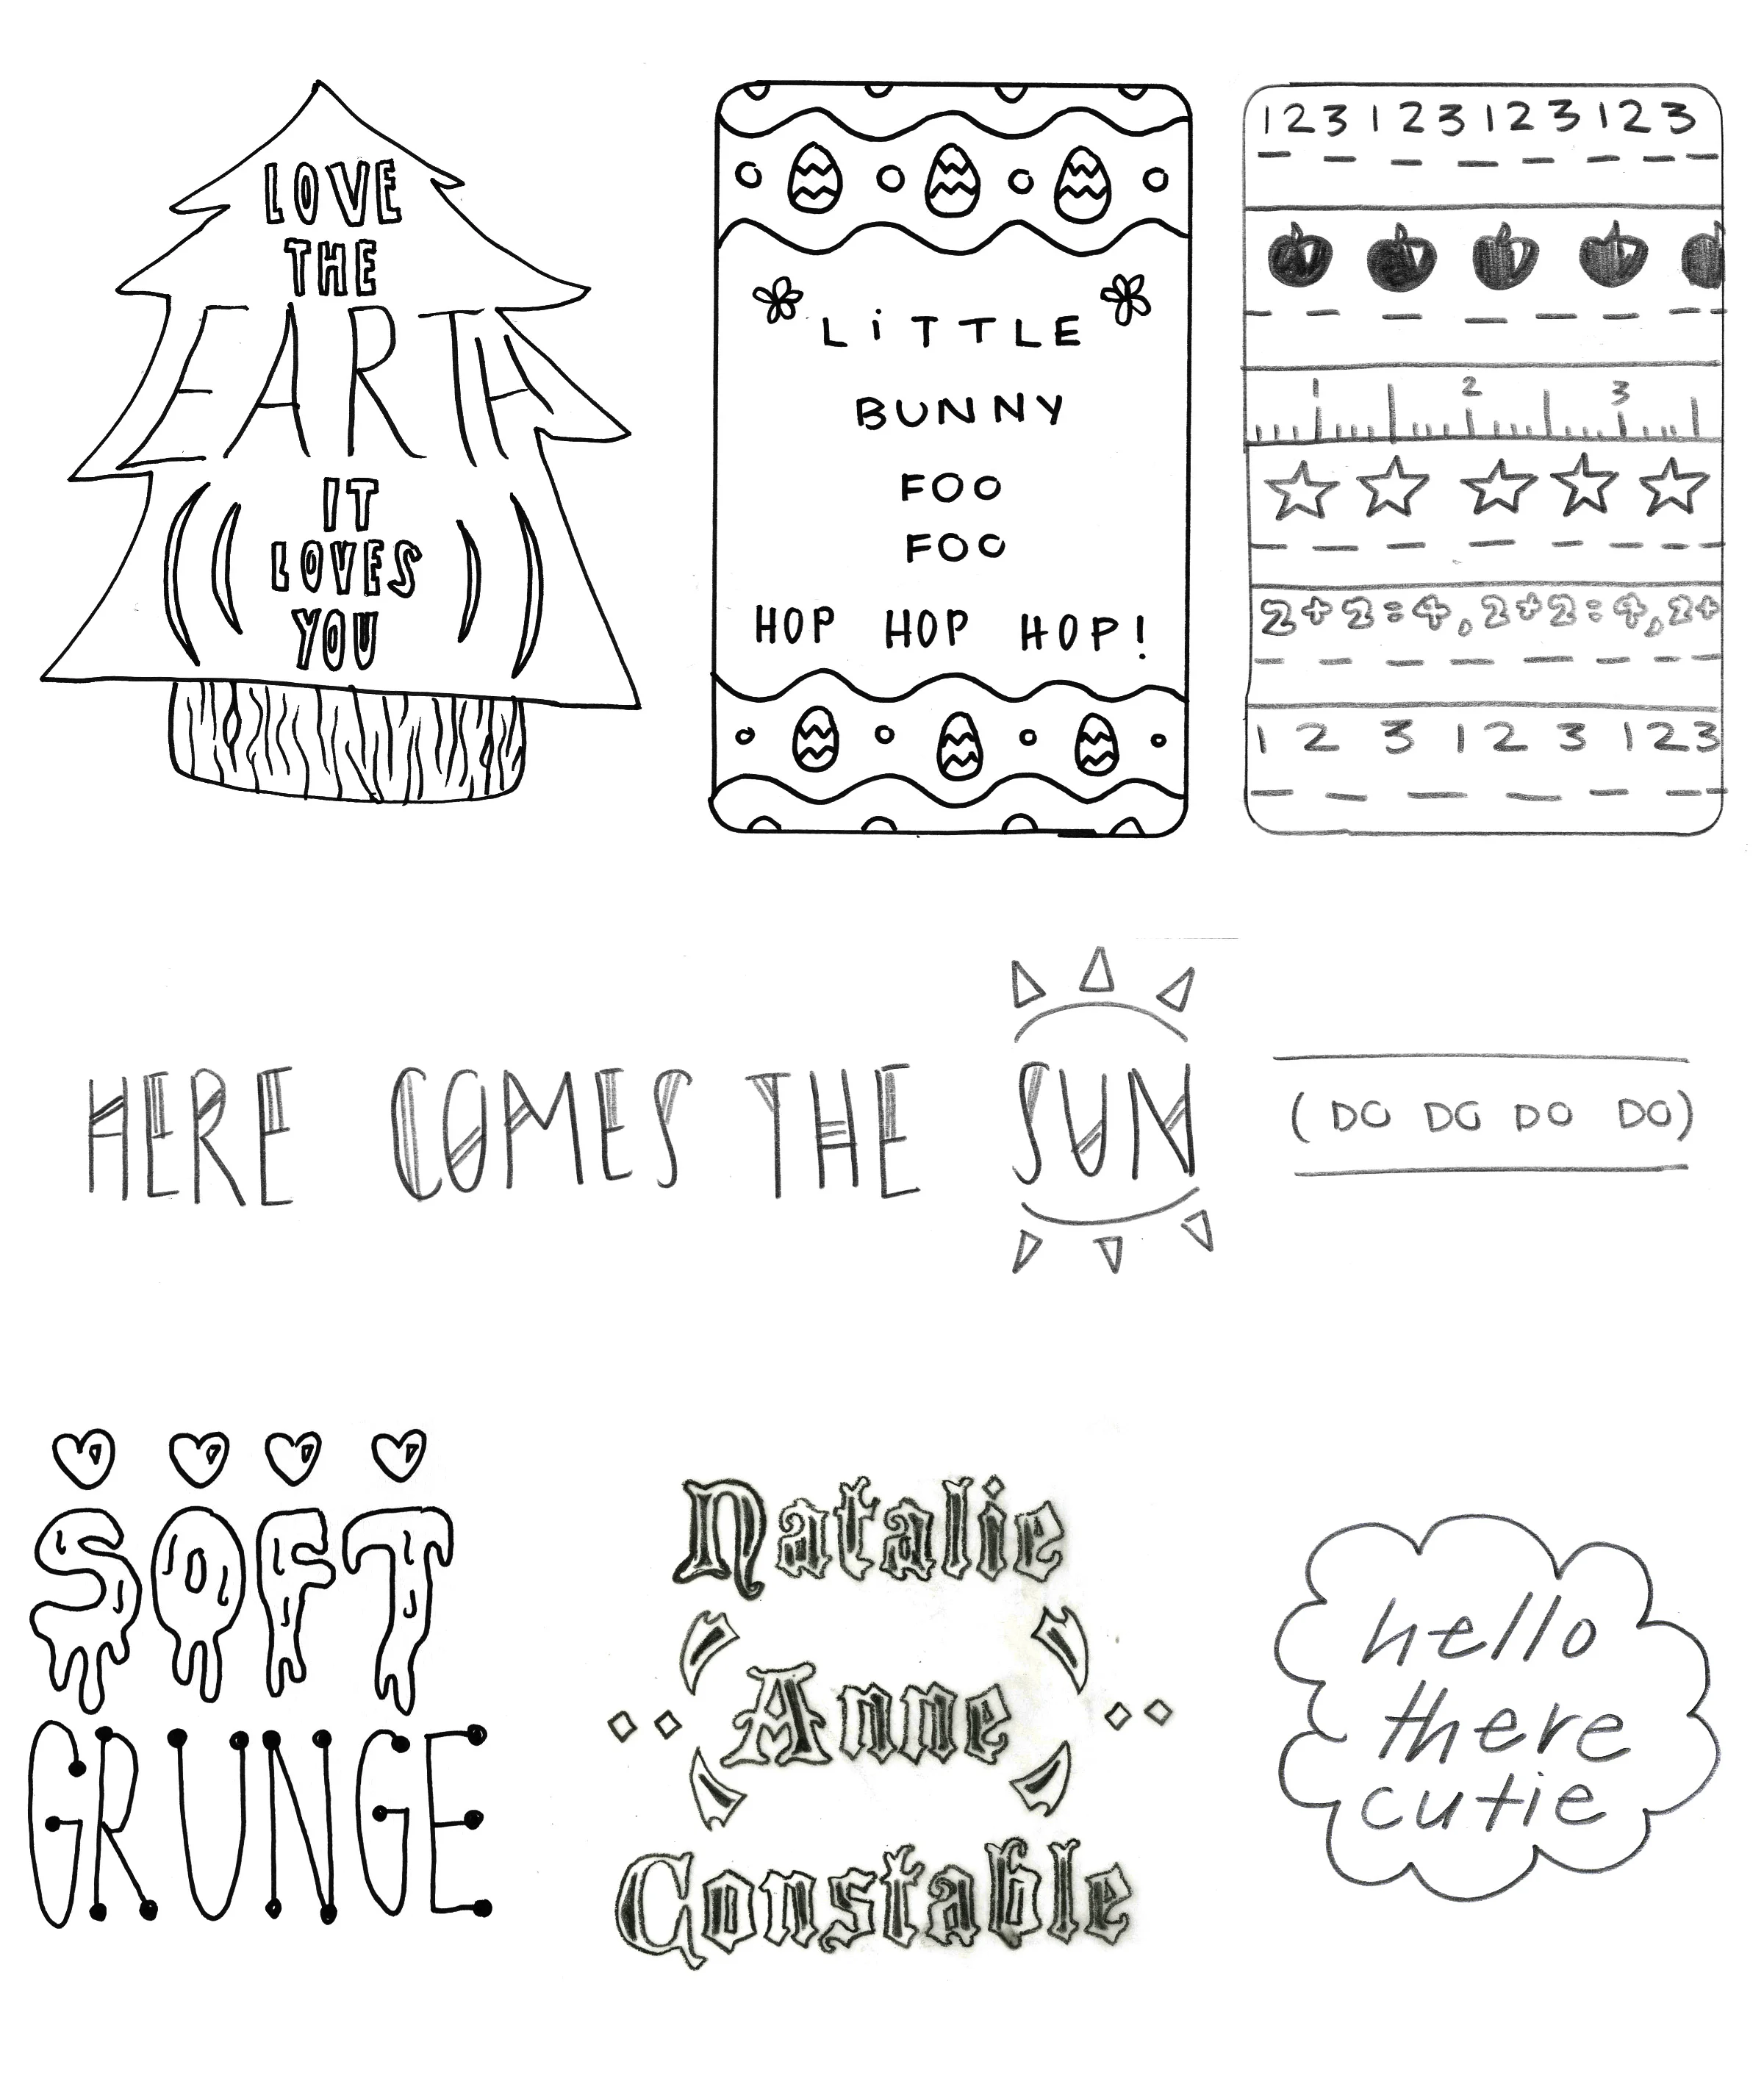 LOVE
THE
EARTH
IT
LOVES
YOU
LiTTLE
BUNNY
FOO
FOO
HOP HOP HOP!
123 123 123 123
1 2 3
2+2=4,2+2=4,2+
1 2 3 12 3 123
HERE COMES THE SUN (DO DO DO DO)
SOFT
GRUNGE
Natalie
Anne
Constable
hello
there
cutie